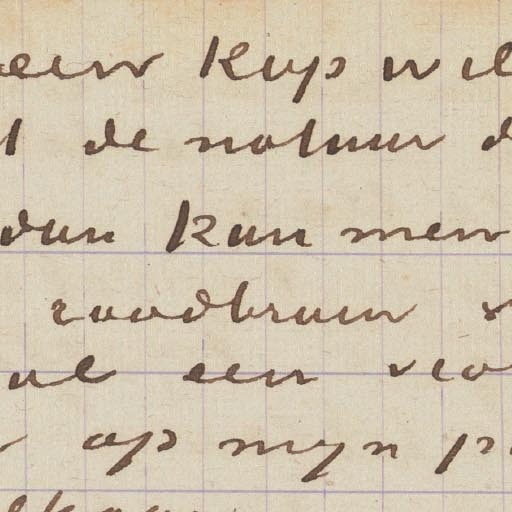 een kop wil
de natuur
dan kan men
roodbruin
al een
op mijn